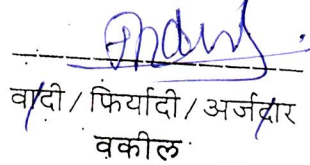 वादी / फिर्यादी / अर्जदार
वकील